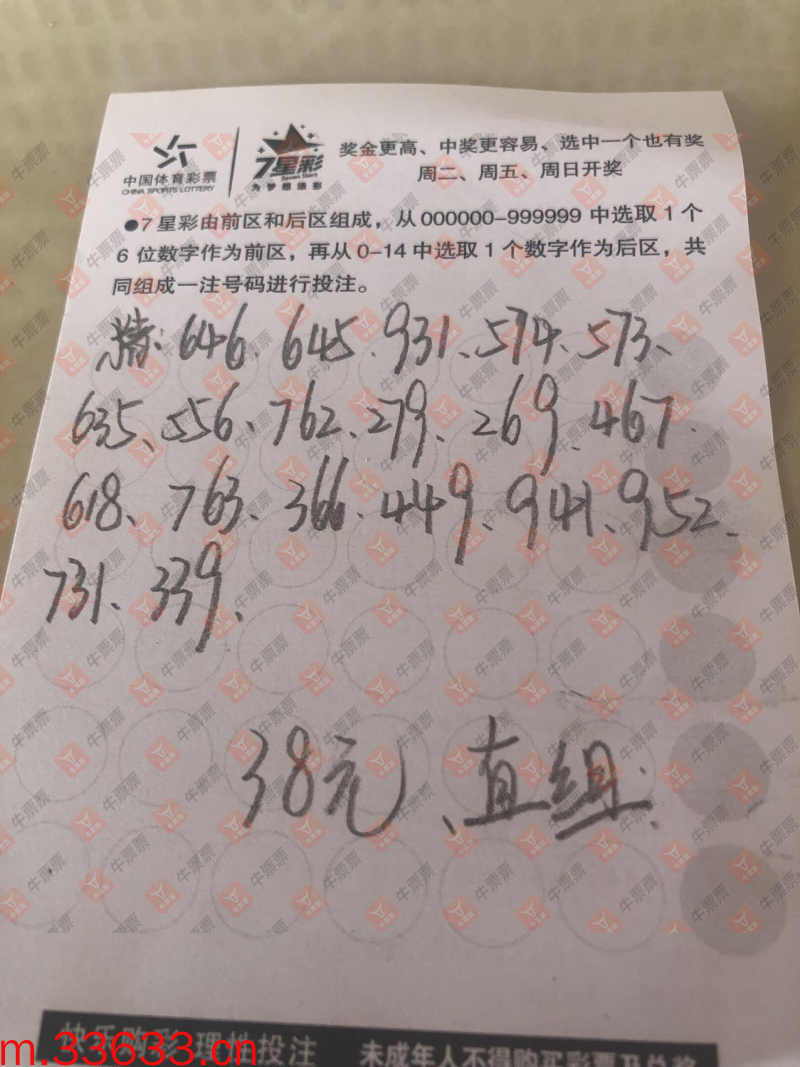 中国体育彩票
CHINA SPORTS LOTTERY
7星彩
为梦想添彩
奖金更高、中奖更容易、选中一个也有奖
周二、周五、周日开奖
●7星彩由前区和后区组成，从000000-999999中选取1个
6位数字作为前区，再从0-14中选取1个数字作为后区，共
同组成一注号码进行投注。
646、645、931、574、573、
635、556、762、279、269、467.
618、763、366、449、941、952、
731、339、
38元、直组.
快乐购彩 理性投注 未成年人不得购买彩票及兑奖
m.33633.cn
牛票票